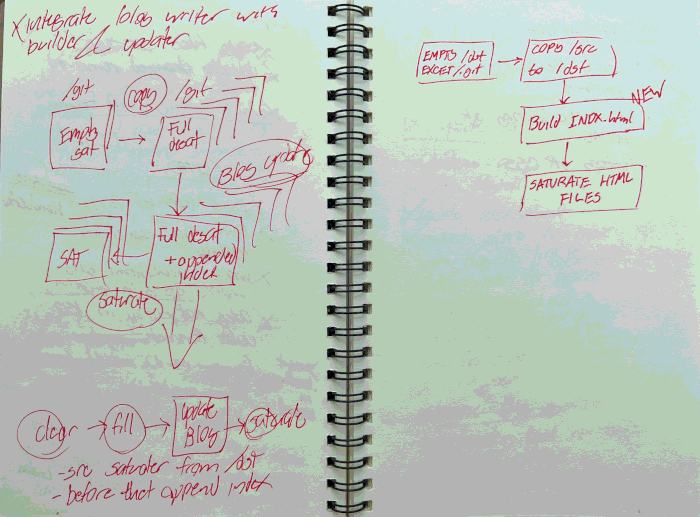 X integrate blog writer with
builder & updater
/git
copy
/git
Empty
sat
Full
desat
Blog update
SAT
Full desat
+ appended
index
saturate
clear
fill
update
Blog
saturate
- src saturater from /dst
- before that append index
EMPTY /dst
EXCEPT /.git
COPY /src
to /dst
NEW
Build INDX.html
SATURATE HTML
FILES